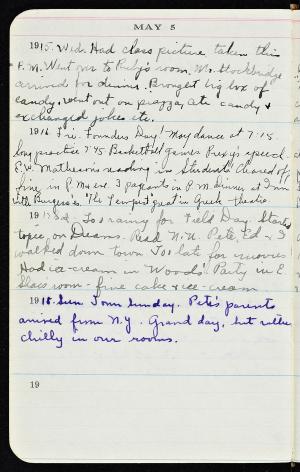 MAY 5
1915. Wed. Had class picture taken this
P.M. Went over to Ruby's room. Mr. Stockbridge
arrived for dinner. Brought big box of
candy, went out on piazza, ate candy &
exchanged jokes etc.
1916 Fri. Founders Day! May dance at 7:15
long practice 7:45 Basketball games Prexy's speech
reading in Students' cleared off
fine in P.M. & eve. 3 pageants in P.M. Dinner at Inn
with Burgess's. "The Tempest" great in Greek theatre
191 Sat. Too rainy for Field Day. Started
topic on Dreams. Read N.N. Pete, Ed & I
walked down town. Too late for movies
Had ice-cream in Wood's. Party in E.
Glass room - fine cake & ice-cream
1918. Sun. Town Sunday. Pete's parents
arrived from N.Y. Grand day, but rather
chilly in our rooms.
19